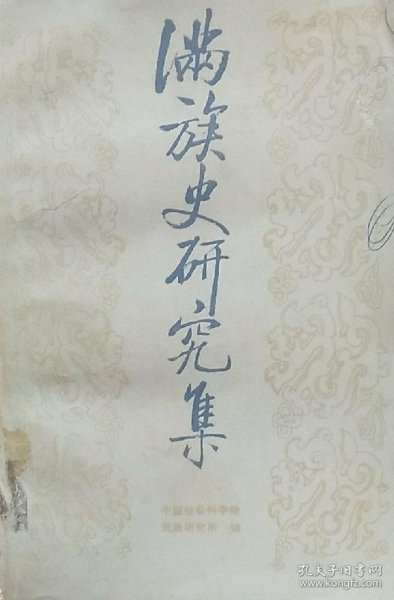 满族史研究集
中国社会科学院
民族研究所 编
孔夫子旧书网
www.kongfz.com